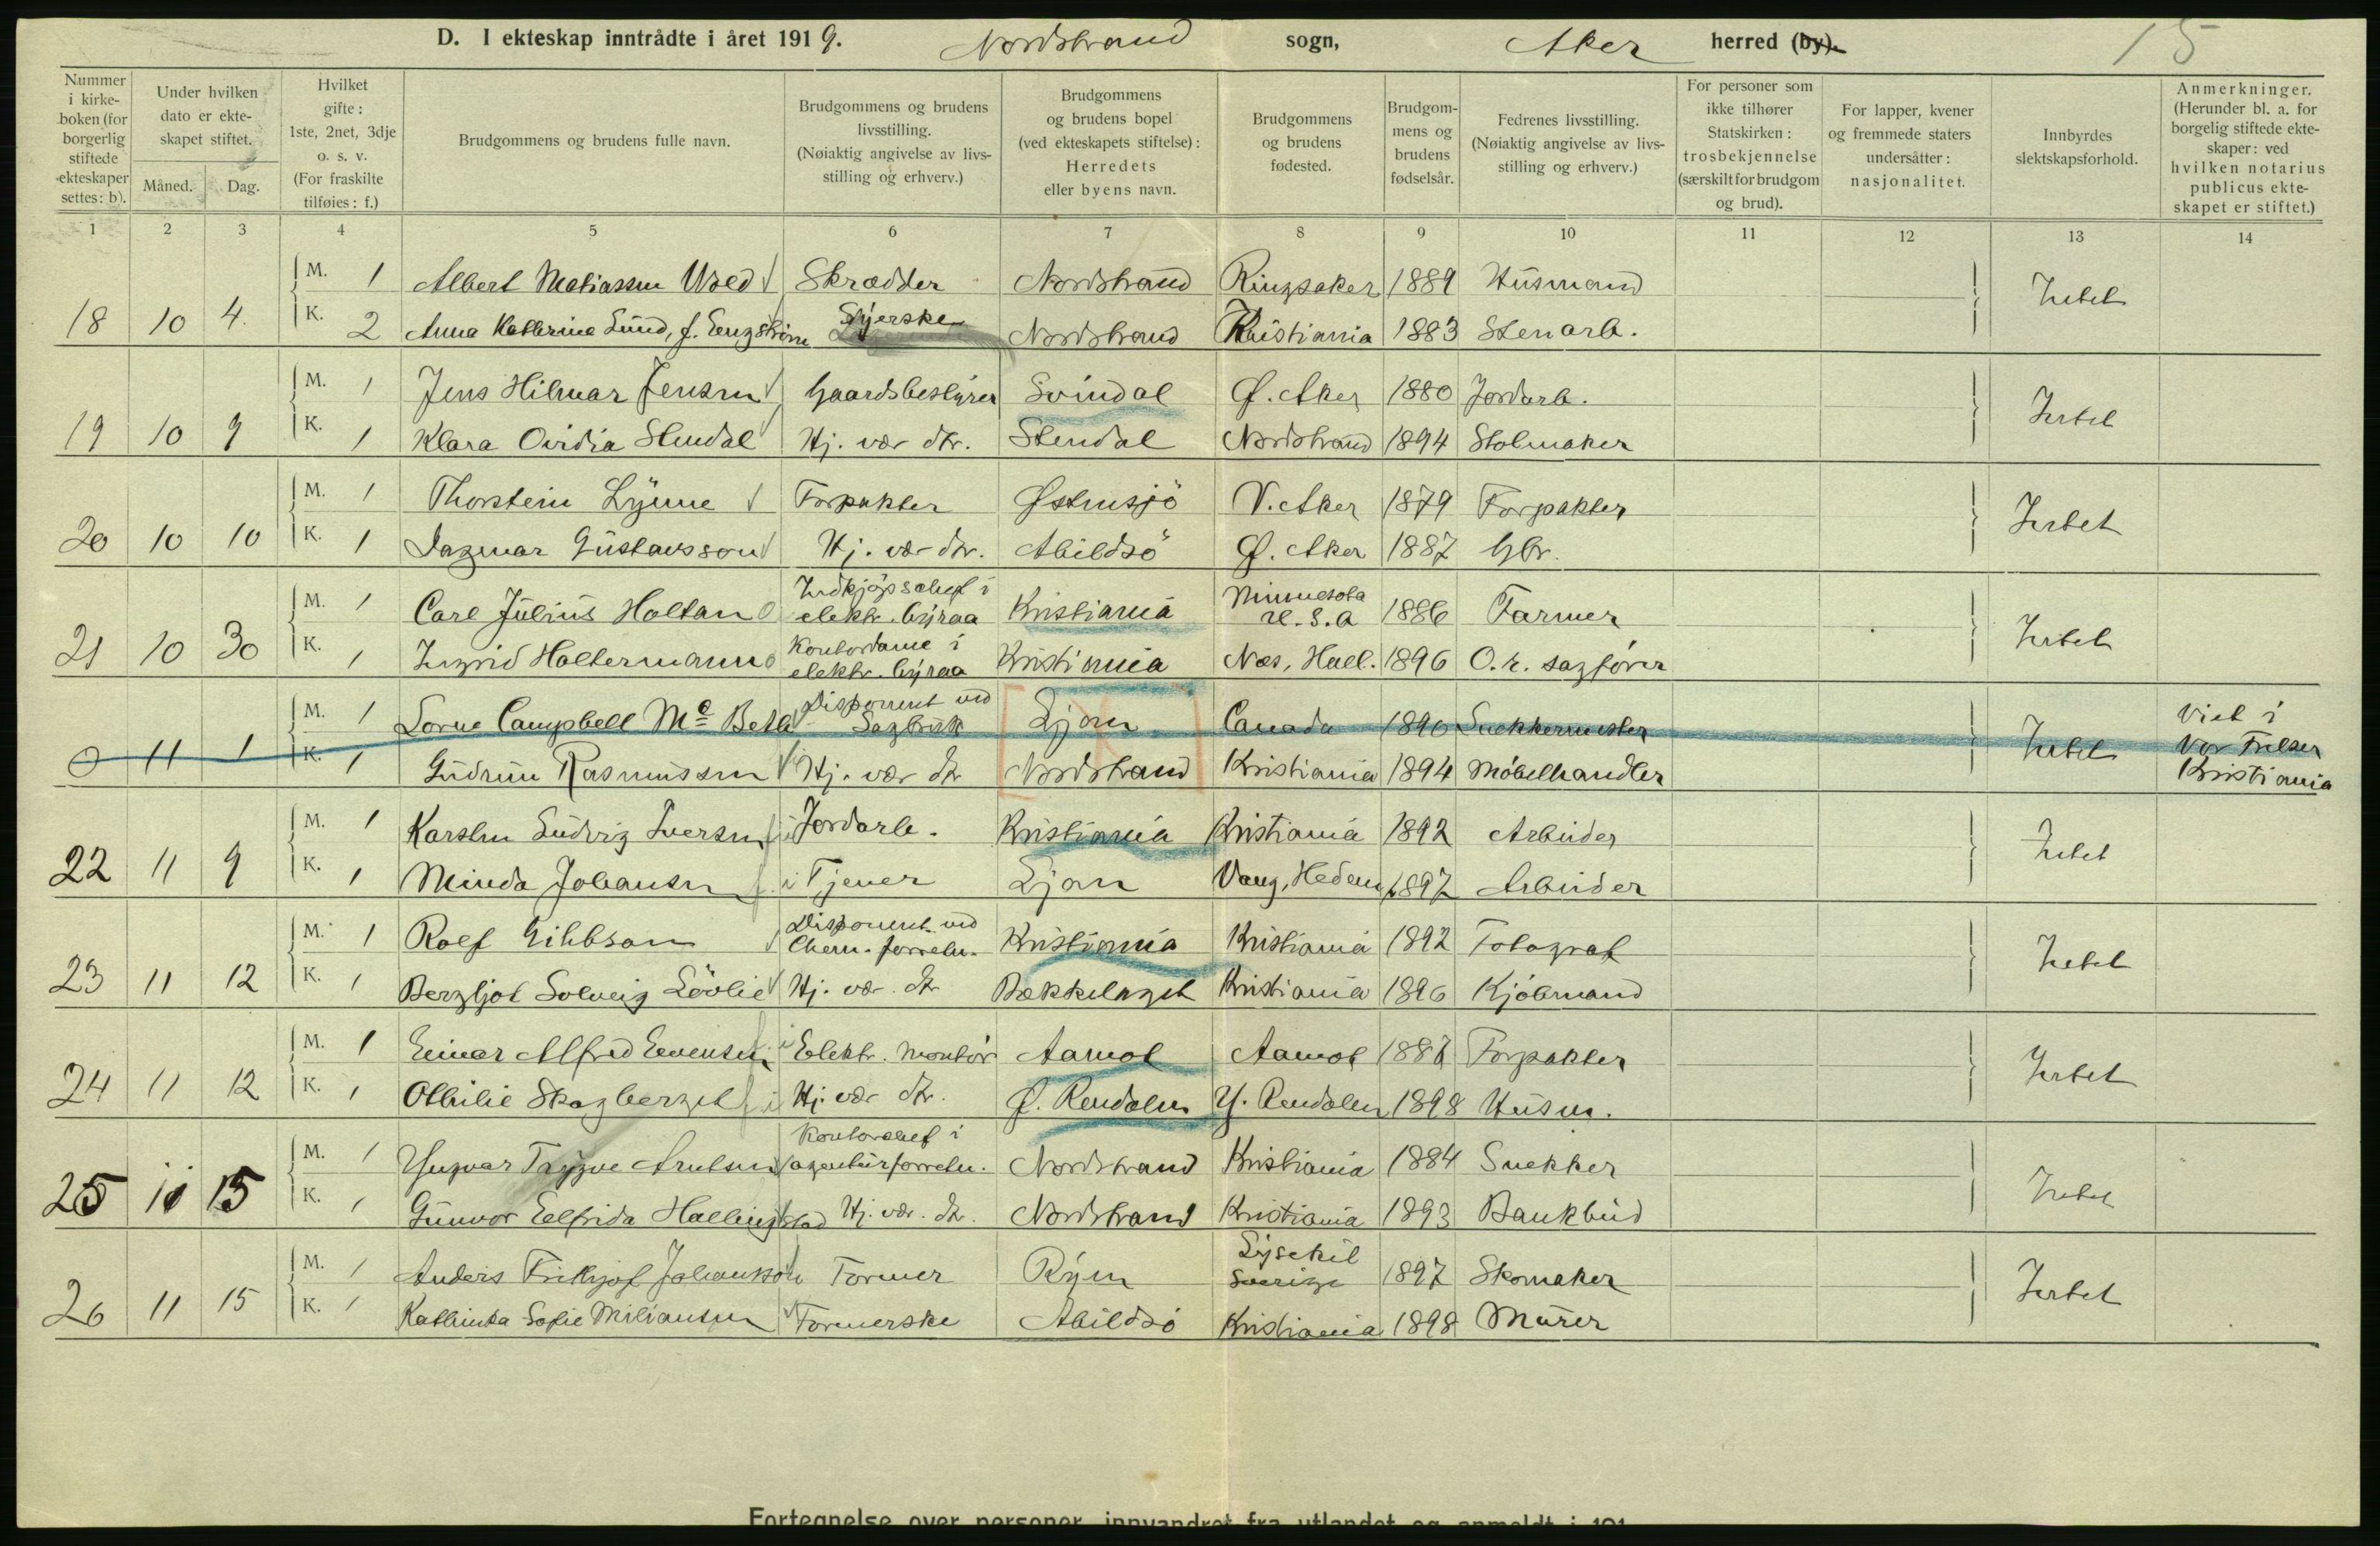 D. I ekteskap inntrådte i året 1919. Nordstrand sogn, Aker herred (by). 15
Nummer i kirkeboken (for borgerlig stiftede ekteskaper settes: b).
Under hvilken dato er ekteskapet stiftet.
Måned. Dag.
Hvilket gifte: 1ste, 2net, 3dje o. s. v. (For fraskilte tilføies: f.)
Brudgommens og brudens fulle navn.
Brudgommens og brudens livsstilling. (Nøiaktig angivelse av livsstilling og erhverv.)
Brudgommens og brudens bopel (ved ekteskapets stiftelse): Herredets eller byens navn.
Brudgommens og brudens fødested.
Brudgommens og brudens fødselsår.
Fedrenes livsstilling. (Nøiaktig angivelse av livsstilling og erhverv.)
For personer som ikke tilhører Statskirken: trosbekjennelse (særskilt for brudgom og brud).
For lapper, kvener og fremmede staters undersåtter: nasjonalitet.
Innbyrdes slektskapsforhold.
Anmerkninger. (Herunder bl. a. for borgelig stiftede ekteskaper: ved hvilken notarius publicus ekteskapet er stiftet.)
1 2 3 4 5 6 7 8 9 10 11 12 13 14
M. 1 Albert Matiassen Wold Skrædder Nordstrand Ringsaker 1889 Husmand
18 10 4. K. 2 Anna Katherine Lund, f. Engstrøm Syerske Nordstrand Kristiania 1883 Stenarb. Intet
M. 1 Jens Hilmar Jensen Gaardsbestyrer Svindal Ø. Aker 1880 Jordarb.
19 10 9 K. 1 Klara Ovidia Stendal Hj. vær. dtr. Stendal Nordstrand 1894 Stolmaker Intet
M. 1 Thorstein Lynne Forpakter Østensjö V. Aker 1879 Forpakter
20 10 10 K. 1 Dagmar Gustavsson Hj. vær. dtr. Abildsö Ø. Aker 1887 Gbr. Intet
M. 1 Carl Julius Holtan Indkjøpschef i elektr. byraa Kristiania Minnesota U.S.A 1886 Farmer
21 10 30 K. 1 Ingrid Haltermann Kontordame i elektr. byraa Kristiania Næs, Hall. 1896 O.r. sagfører Intet
M. 1 Lorne Campbell Mc Beth Disponent ved Sagbruk Ljan Canada 1890 Snekkermester
0 11 1 K. 1 Gudrun Rasmussen Hj. vær. dtr Nordstrand Kristiania 1894 Møbelhandler Intet Viet i Vor Frelser Kristiania
M. 1 Karsten Ludvig Iversen Jordarb. Kristiania Kristiania 1892 Arbeider
22 11 9 K. 1 Minda Johansen Tjener Ljan Vang, Hedem 1897 Arbeider Intet
M. 1 Rolf Gihbson Disponent ved Chem. forretn. Kristiania Kristiania 1892 Fotograf
23 11 12 K. 1 Bergljot Solveig Lövlie Hj. vær. dtr Bækkelaget Kristiania 1896 Kjöbmand Intet
M. 1 Einar Alfred Evensen Elektr. montør Aamot Aamot 1887 Forpakter
24 11 12 K. 1 Othilie Skogberget Hj. vær. dtr. Ø. Rendalen Y. Rendalen 1898 Husm. Intet
M. 1 Yngvar Trygve Arntsen Kontorchef i agenturforretn. Nordstrand Kristiania 1884 Snekker
25 11 15 K. 1 Gunvor Elfrida Hallingstad Hj. vær. dtr. Nordstrand Kristiania 1893 Bankbud Intet
M. 1 Anders Frithjof Johansson Former Ryen Lysekil Sverige 1897 Skomaker
26 11 15 K. 1 Kathinka Sofie Miliansen Formerske Abildsö Kristiania 1898 Murer Intet
Fortegnelse over personer, innvandret fra utlandet og anmeldt i 191